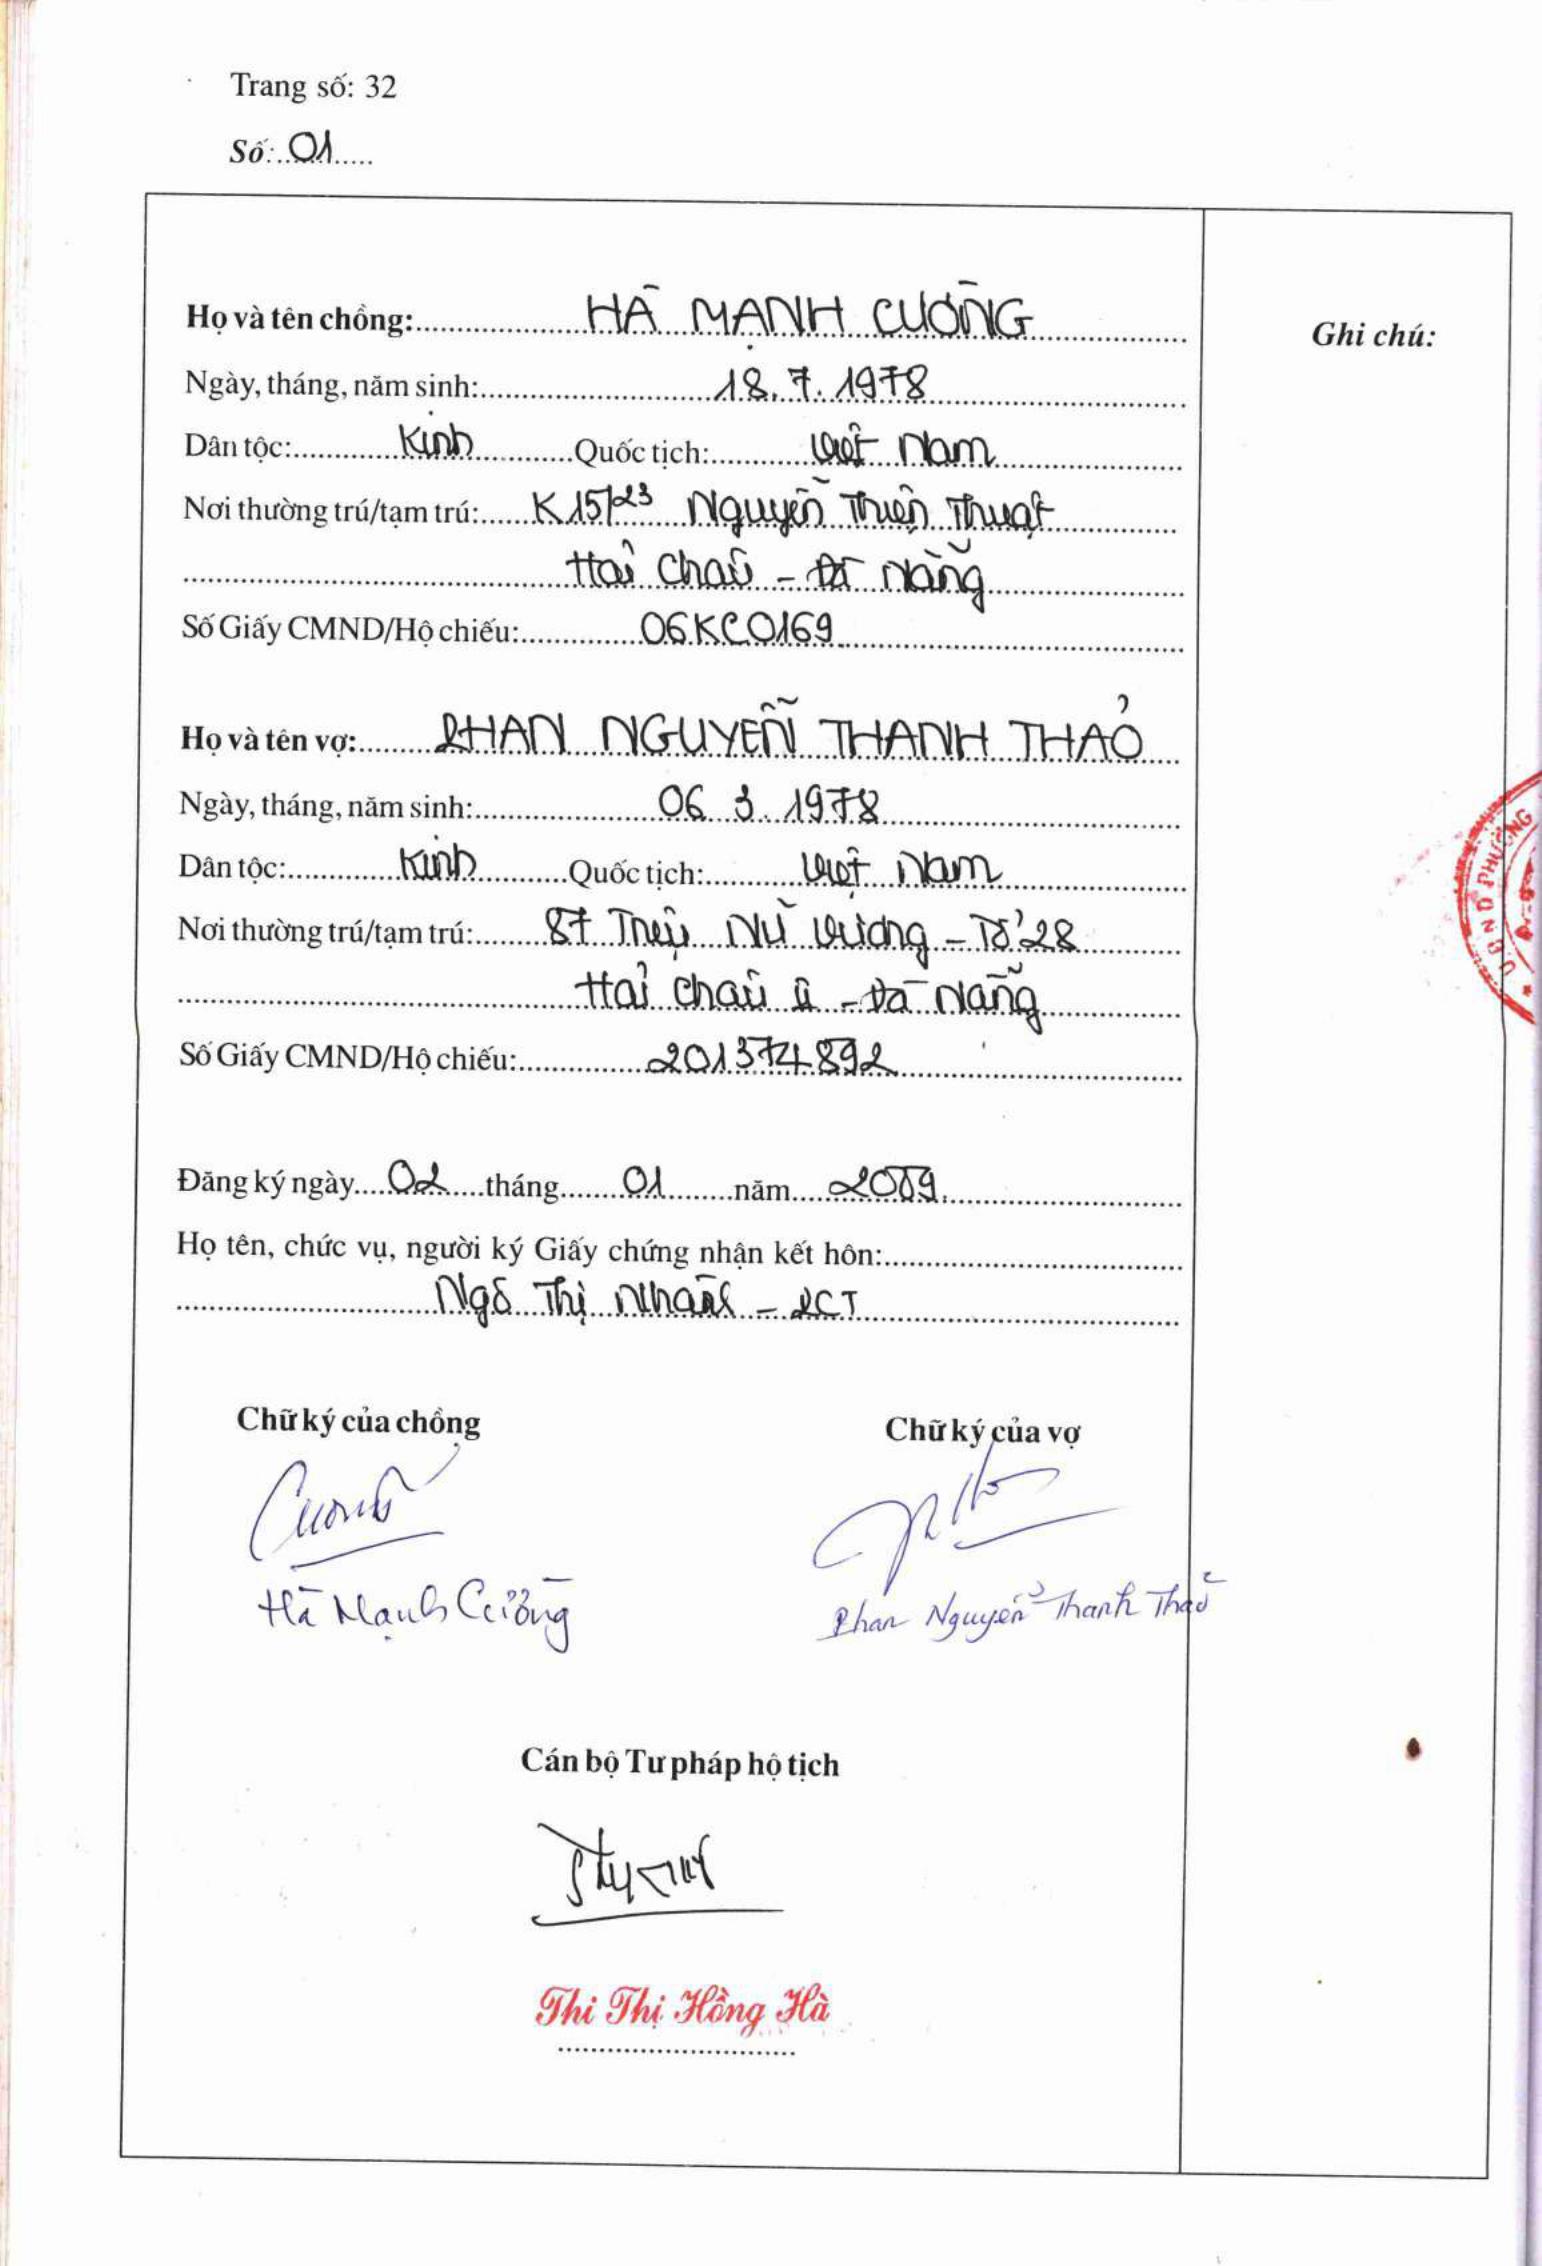 Trang số: 32
Số: 01
Họ và tên chồng: HÀ MẠNH CƯỜNG
Ghi chú:
Ngày, tháng, năm sinh: 18.7.1978
Dân tộc: Kinh Quốc tịch: Việt Nam
Nơi thường trú/tạm trú: K15/23 Nguyễn Thiện Thuật
Hải Châu - Đà Nẵng
Số Giấy CMND/Hộ chiếu: 06KC0169
Họ và tên vợ: PHAN NGUYỄN THANH THẢO
Ngày, tháng, năm sinh: 06.3.1978
Dân tộc: Kinh Quốc tịch: Việt Nam
Nơi thường trú/tạm trú: 87 Triệu Nữ Vương - Tổ 28
Hải Châu II - Đà Nẵng
Số Giấy CMND/Hộ chiếu: 201374892
UBND PHƯỜNG
Đăng ký ngày 02 tháng 01 năm 2009
Họ tên, chức vụ, người ký Giấy chứng nhận kết hôn:
Ngô Thị - PCT
Chữ ký của chồng Chữ ký của vợ
Cường
Hà Mạnh Cường Phan Nguyễn Thanh Thảo
Cán bộ Tư pháp hộ tịch
Thi Thị Hồng Hà